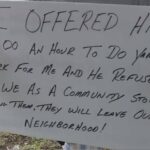 I OFFERED HI
00 AN HOUR TO DO YAR
RK FOR ME AND HE REFUSE
WE AS A COMMUNITY STO
THEM, THEY WILL LEAVE OU
NEIGHBORHOOD!